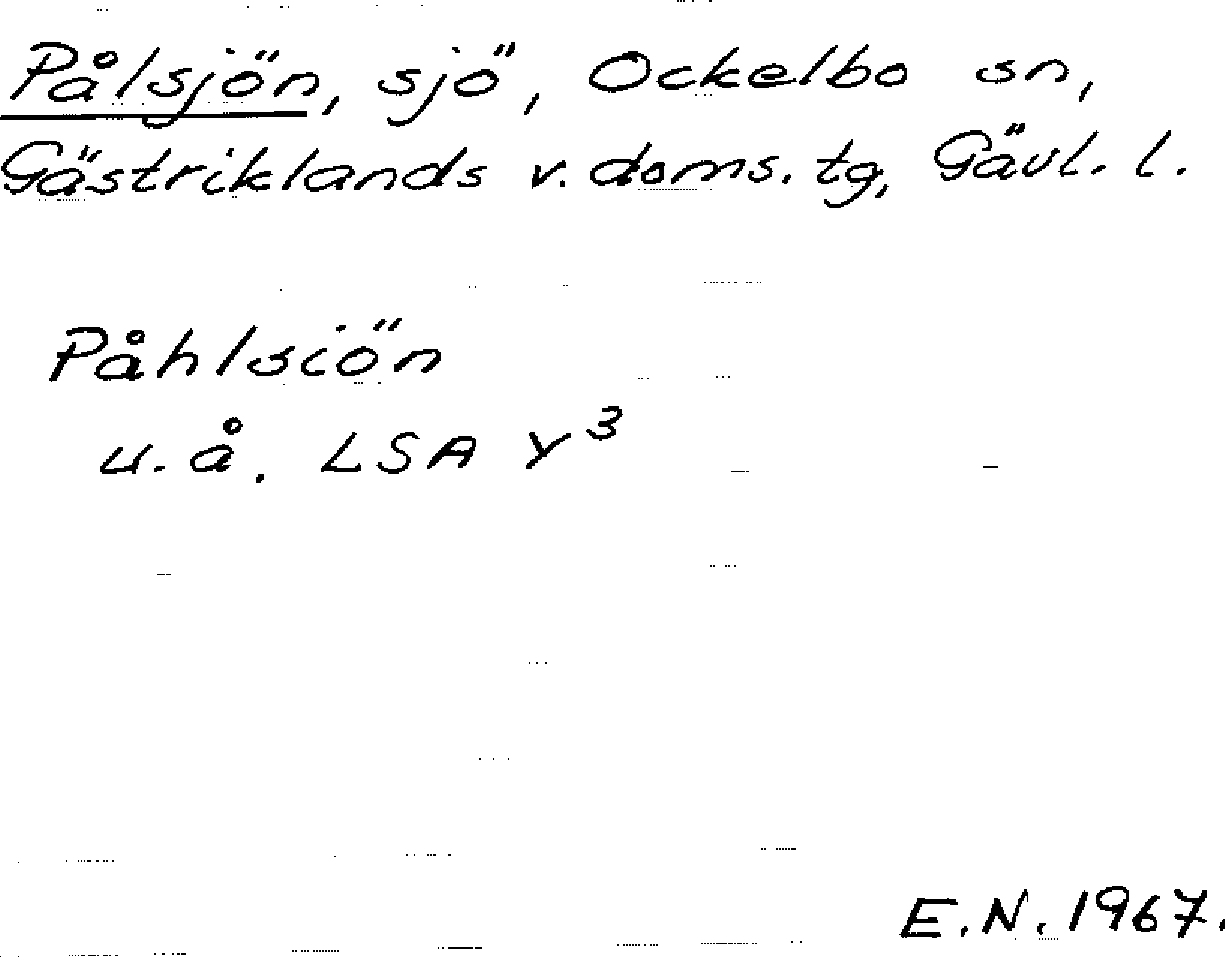 Pålsjön, sjö, Ockelbo sn,
Gästriklands v. doms. tg, Gävl. l.
Påhlsiön
u. å. LSA Y³
E.N. 1967.